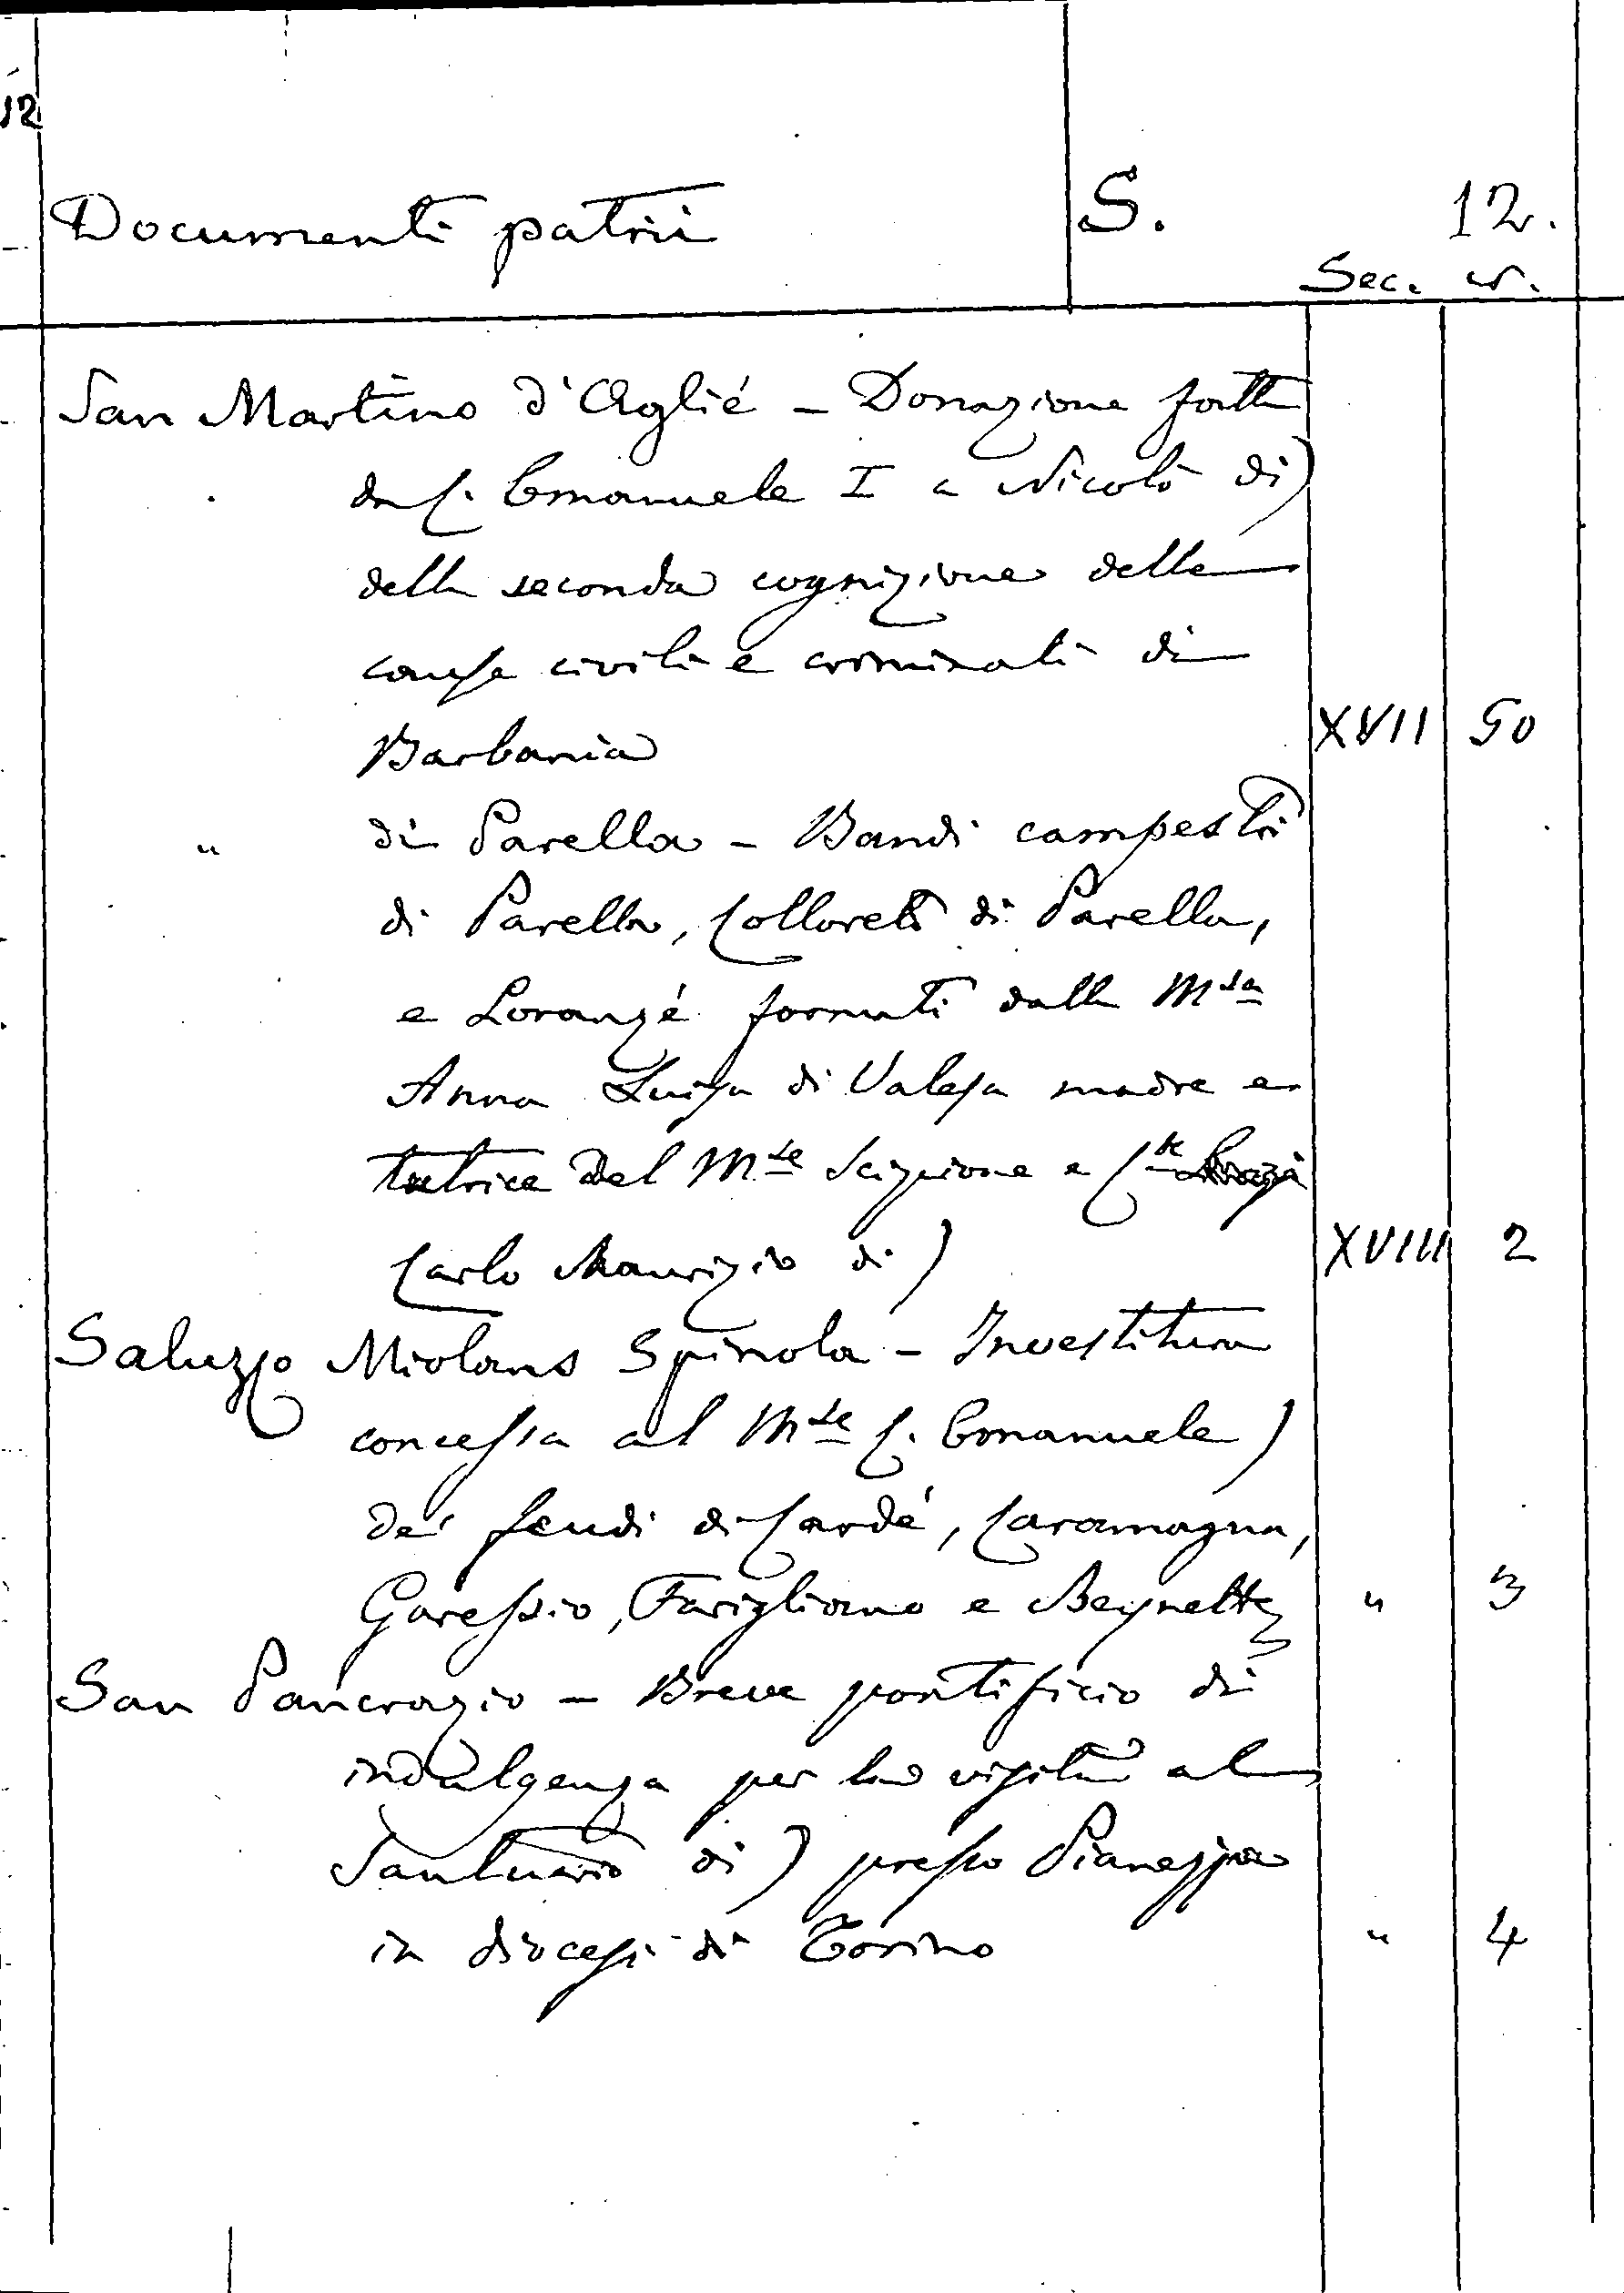 12
Documenti patrii
S. 12.
Sec. n.
San Martino d'Aglié – Donazione fatta
da C. Emanuele I a Nicolò di)
della seconda cognizione delle
cause civili e criminali di
Barbania XVII 50
" di Parella – Bandi campestri
di Parella, Colloreto di Parella,
e Loranzé formati dalla M.sa
Anna Luisa di Valesa madre e
tutrice del M.se Scipione e C.te
Carlo Maurizio di) XVIII 2
Saluzzo Miolans Spinola – Investitura
concessa al M.se C. Emanuele)
dei feudi di Cardé, Caramagna,
Garessio, Farigliano e Beynette " 3
San Pancrazio – Breve pontificio di
indulgenza per la visita al
Santuario di) presso Pianezza
in diocesi di Torino " 4